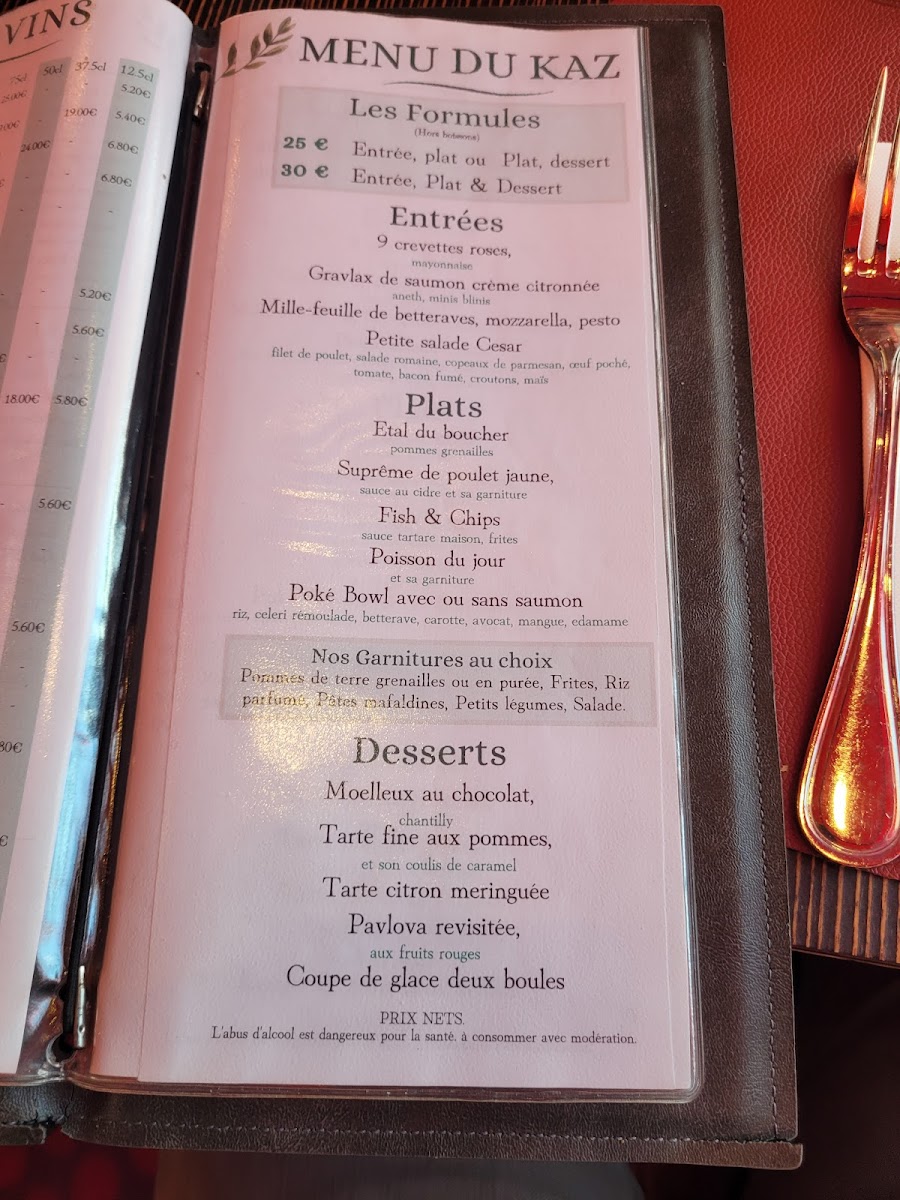 VINS
75cl 50cl 37.5cl 12.5cl
25.00€ - - 5.20€
- 19.00€ 5.40€
24.00€ - 6.80€
- - 6.80€
- - -
- - 5.20€
- - 5.60€
- - -
18.00€ 5.80€
- - 5.60€
- -
5.60€
-
-
MENU DU KAZ
Les Formules
(Hors boissons)
25 € Entrée, plat ou Plat, dessert
30 € Entrée, Plat & Dessert
Entrées
9 crevettes roses,
mayonnaise
Gravlax de saumon crème citronnée
aneth, minis blinis
Mille-feuille de betteraves, mozzarella, pesto
Petite salade Cesar
filet de poulet, salade romaine, copeaux de parmesan, œuf poché,
tomate, bacon fumé, croutons, maïs
Plats
Etal du boucher
pommes grenailles
Suprême de poulet jaune,
sauce au cidre et sa garniture
Fish & Chips
sauce tartare maison, frites
Poisson du jour
et sa garniture
Poké Bowl avec ou sans saumon
riz, celeri rémoulade, betterave, carotte, avocat, mangue, edamame
Nos Garnitures au choix
Pommes de terre grenailles ou en purée, Frites, Riz
parfumé, Pâtes mafaldines, Petits légumes, Salade.
Desserts
Moelleux au chocolat,
chantilly
Tarte fine aux pommes,
et son coulis de caramel
Tarte citron meringuée
Pavlova revisitée,
aux fruits rouges
Coupe de glace deux boules
PRIX NETS.
L'abus d'alcool est dangereux pour la santé. à consommer avec modération.